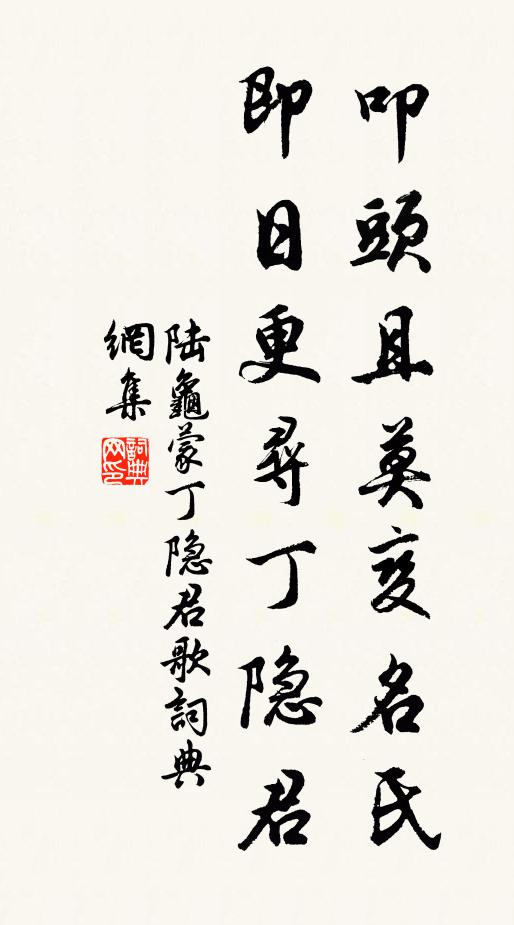 叩頭且莫变名氏
即日更尋丁隐君
陆龜蒙丁隐君歌詞典
網集
詞典网印